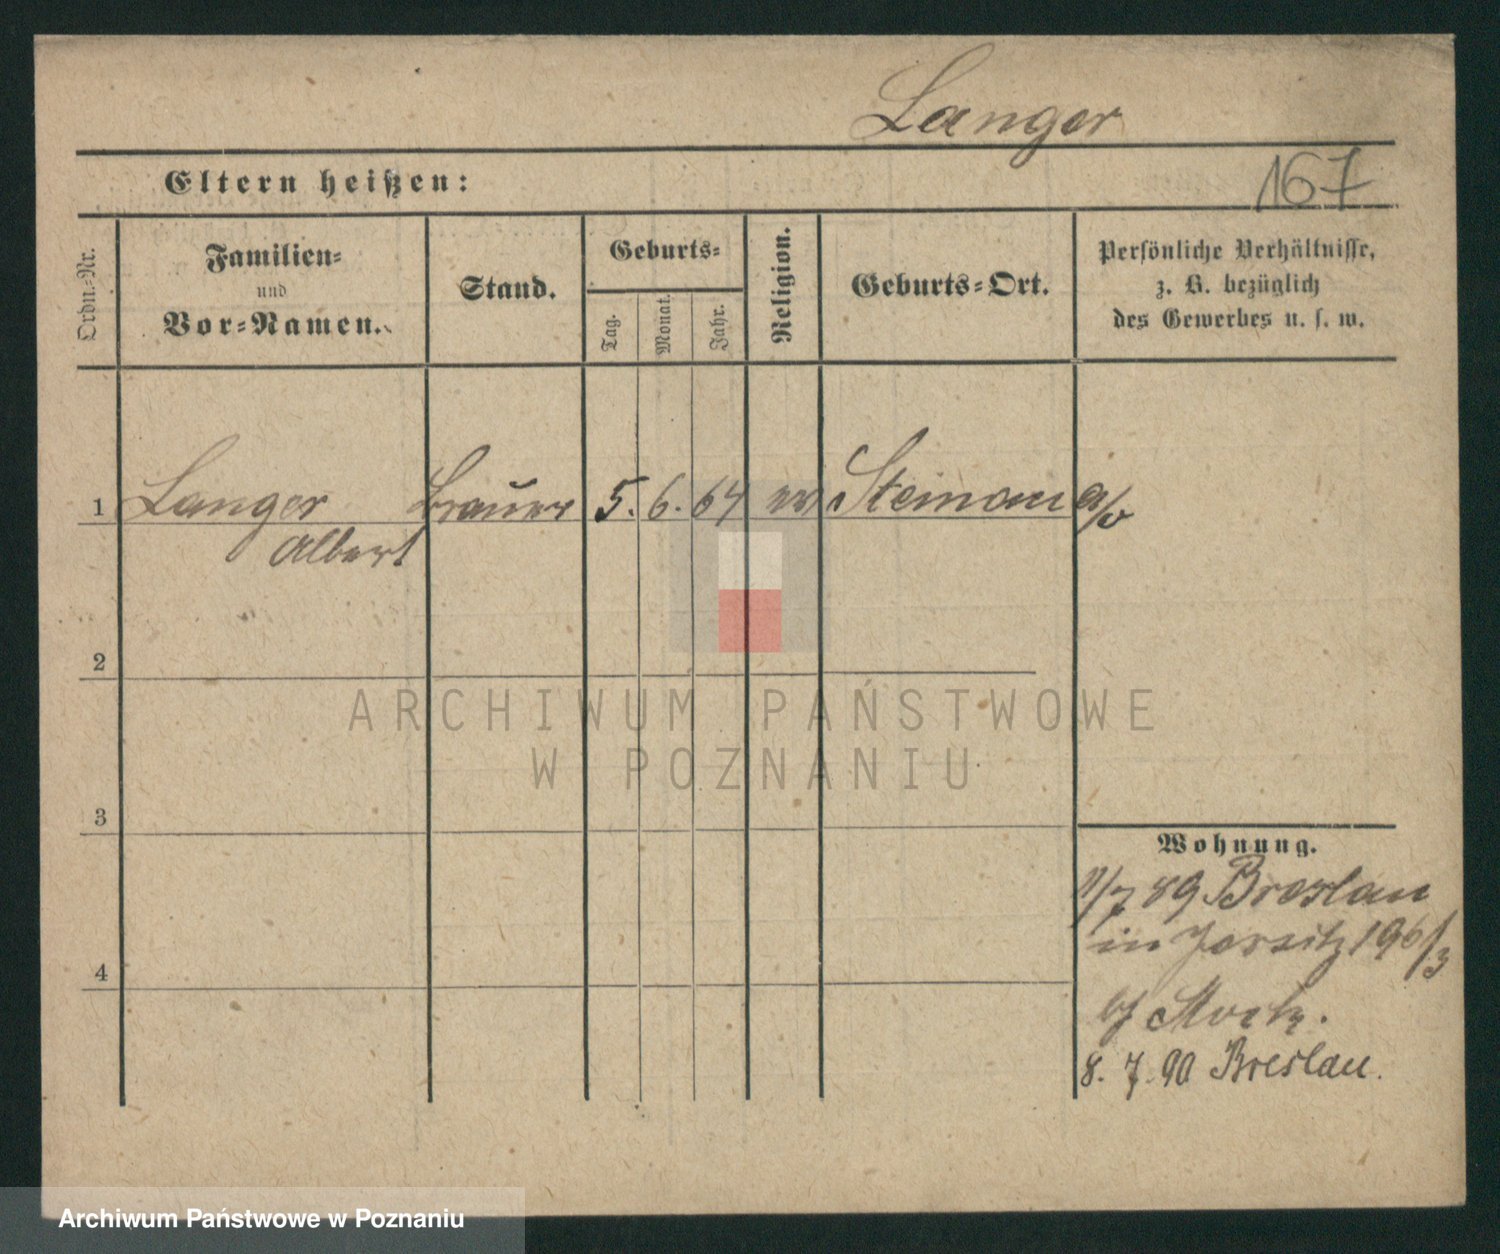 Langer
Eltern heißen:
167
Ordn.-Nr.
Familien-
und
Vor-Namen.
Stand.
Geburts-
Tag.
Monat.
Jahr.
Religion.
Geburts-Ort.
Persönliche Verhältnisse,
z. B. bezüglich
des Gewerbes u. s. w.
1 Langer Brauer 5. 6. 64 ev Steinau a/o
Albert
2
ARCHIWUM PAŃSTWOWE
W POZNANIU
3
Wohnung.
11/7 89 Breslau
in Jersitz 196/3
b/
4
8. 7. 90 Breslau.
Archiwum Państwowe w Poznaniu